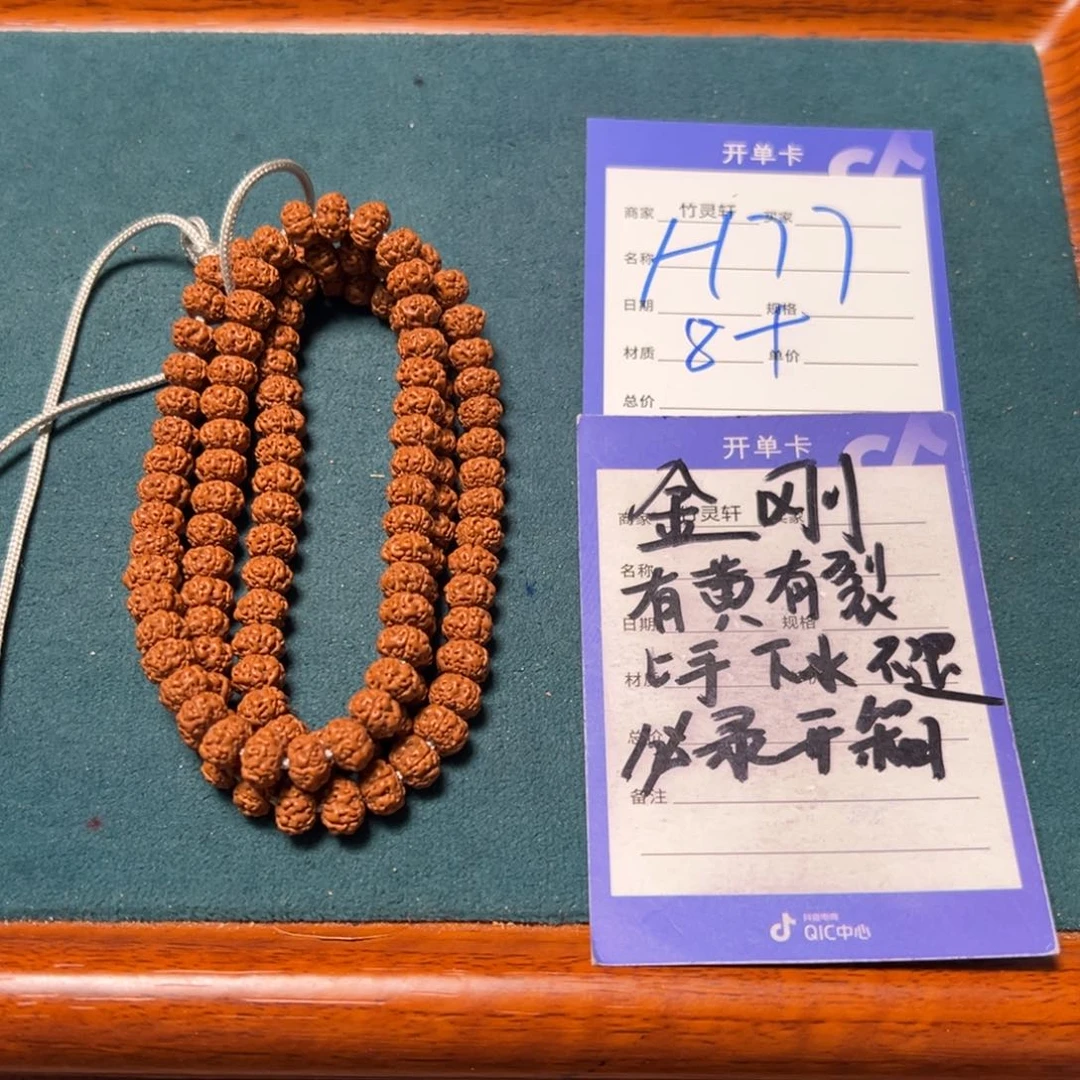 开单卡
商家 竹灵轩 买家
H77
名称
日期 规格
8+
材质 单价
总价
开单卡
金刚
商家 竹灵轩 买家
有黄有裂
名称
日期 规格
上手下水不退
材质
必录开箱
总价
备注
抖音电商
QIC中心